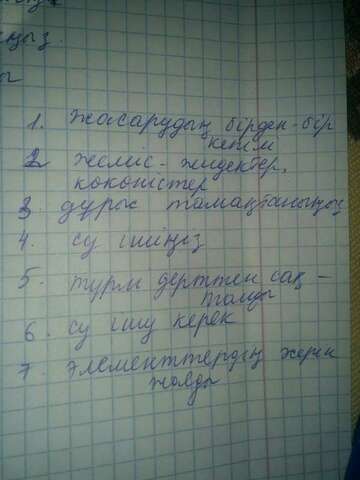 ңыз.
ы
1. жасарудың бірден-бір
кепілі
2 жеміс-жидектер,
көкөністер
3 дұрыс тамақтаныңыз
4. су ішіңіз
5. түрлі дерттен сақ-
тайды
6. су ішу керек
7. элементтердің
жояды